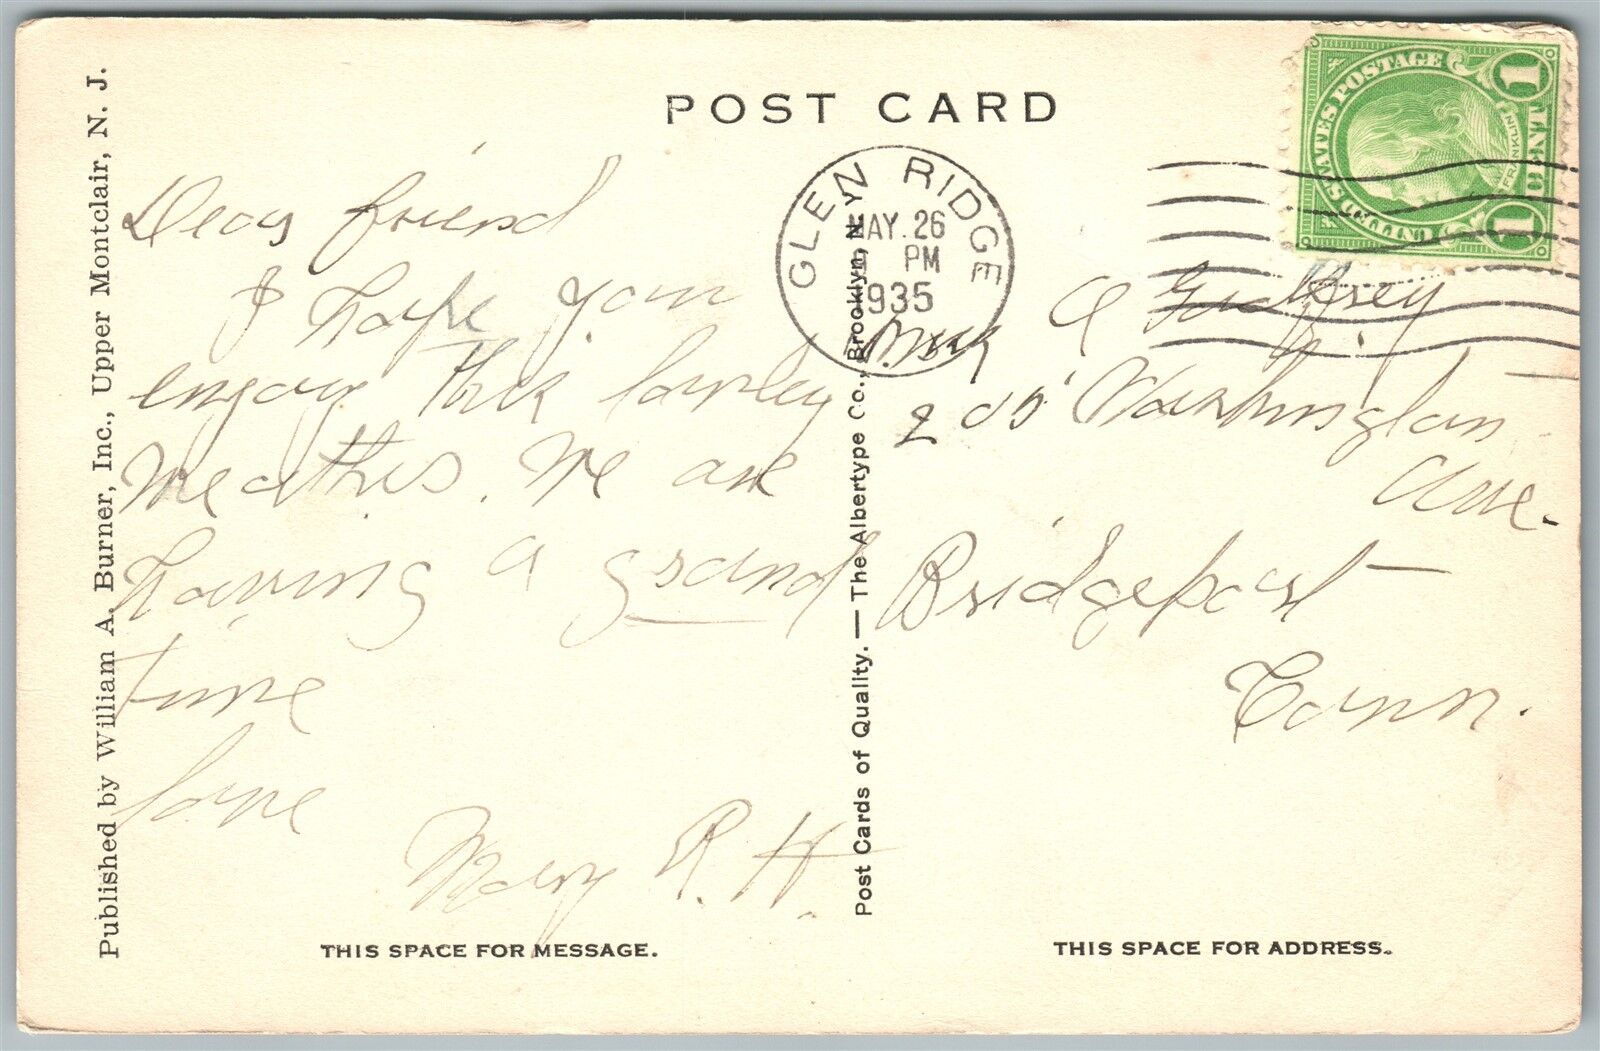 POST CARD
Published by William A. Burner, Inc., Upper Montclair, N. J.
Dear friend
I hope you
enjoy this lovley
weather. We are
having a grand
time
love
Mary R. H.
THIS SPACE FOR MESSAGE.
Post Cards of Quality. — The Albertype Co., Brooklyn, N. Y.
GLEN RIDGE
MAY. 26
PM
1935
UNITED STATES POSTAGE
FRANKLIN
1 CENT 1
A Godfrey
205 Washington
Ave.
Bridgeport
Conn.
THIS SPACE FOR ADDRESS.